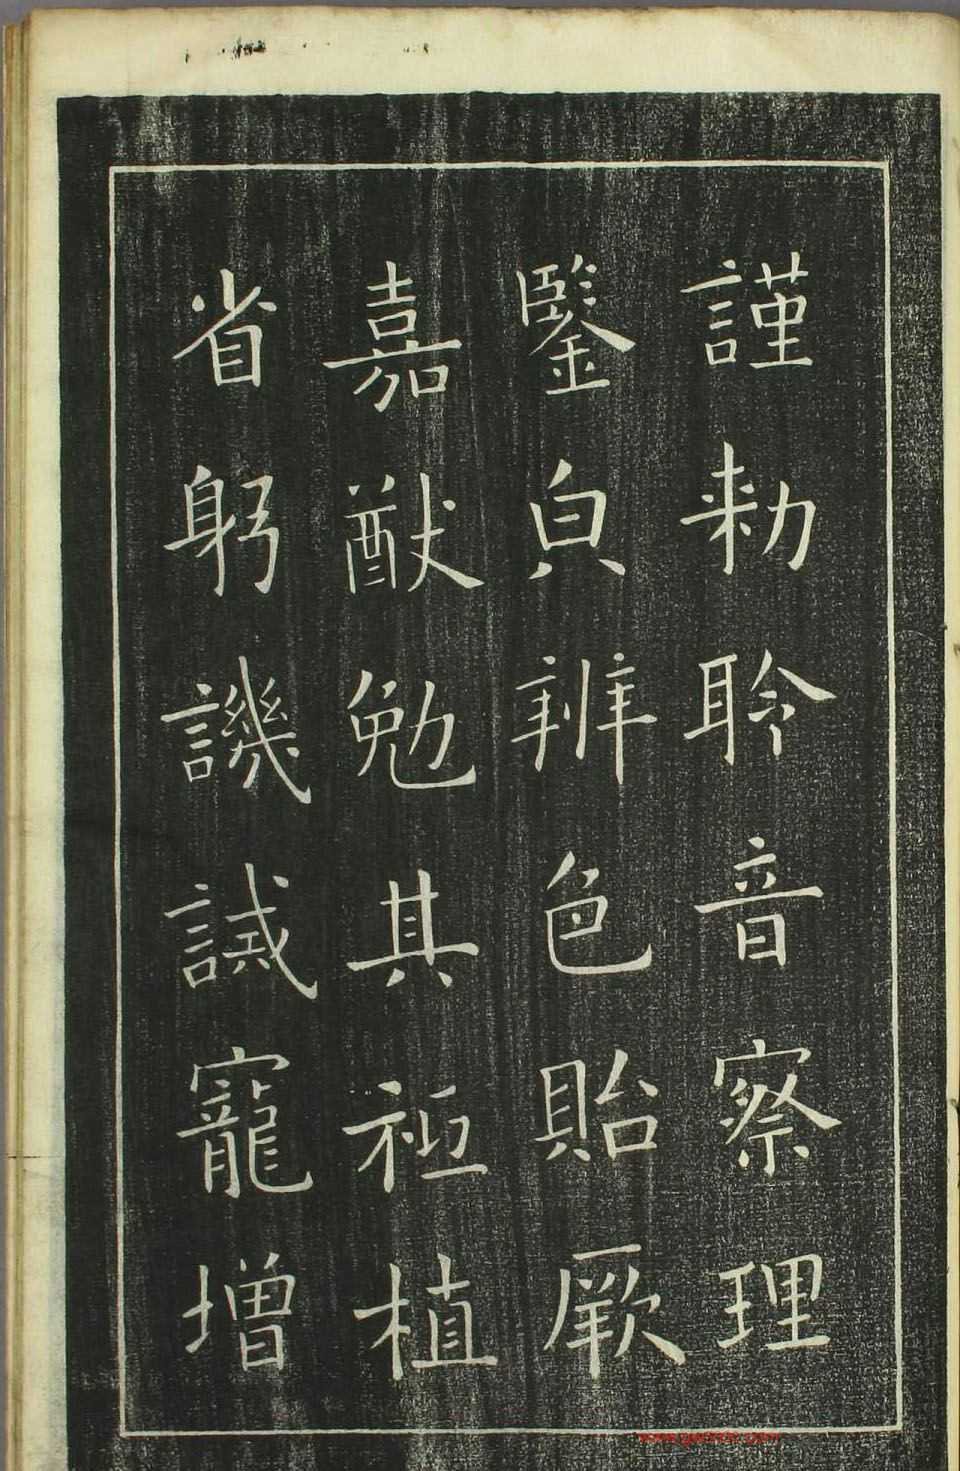 謹勑聆音察理
鑒皃辨色貽厥
嘉猷勉其祗植
省躬譏誡寵增
www.gw5000.com